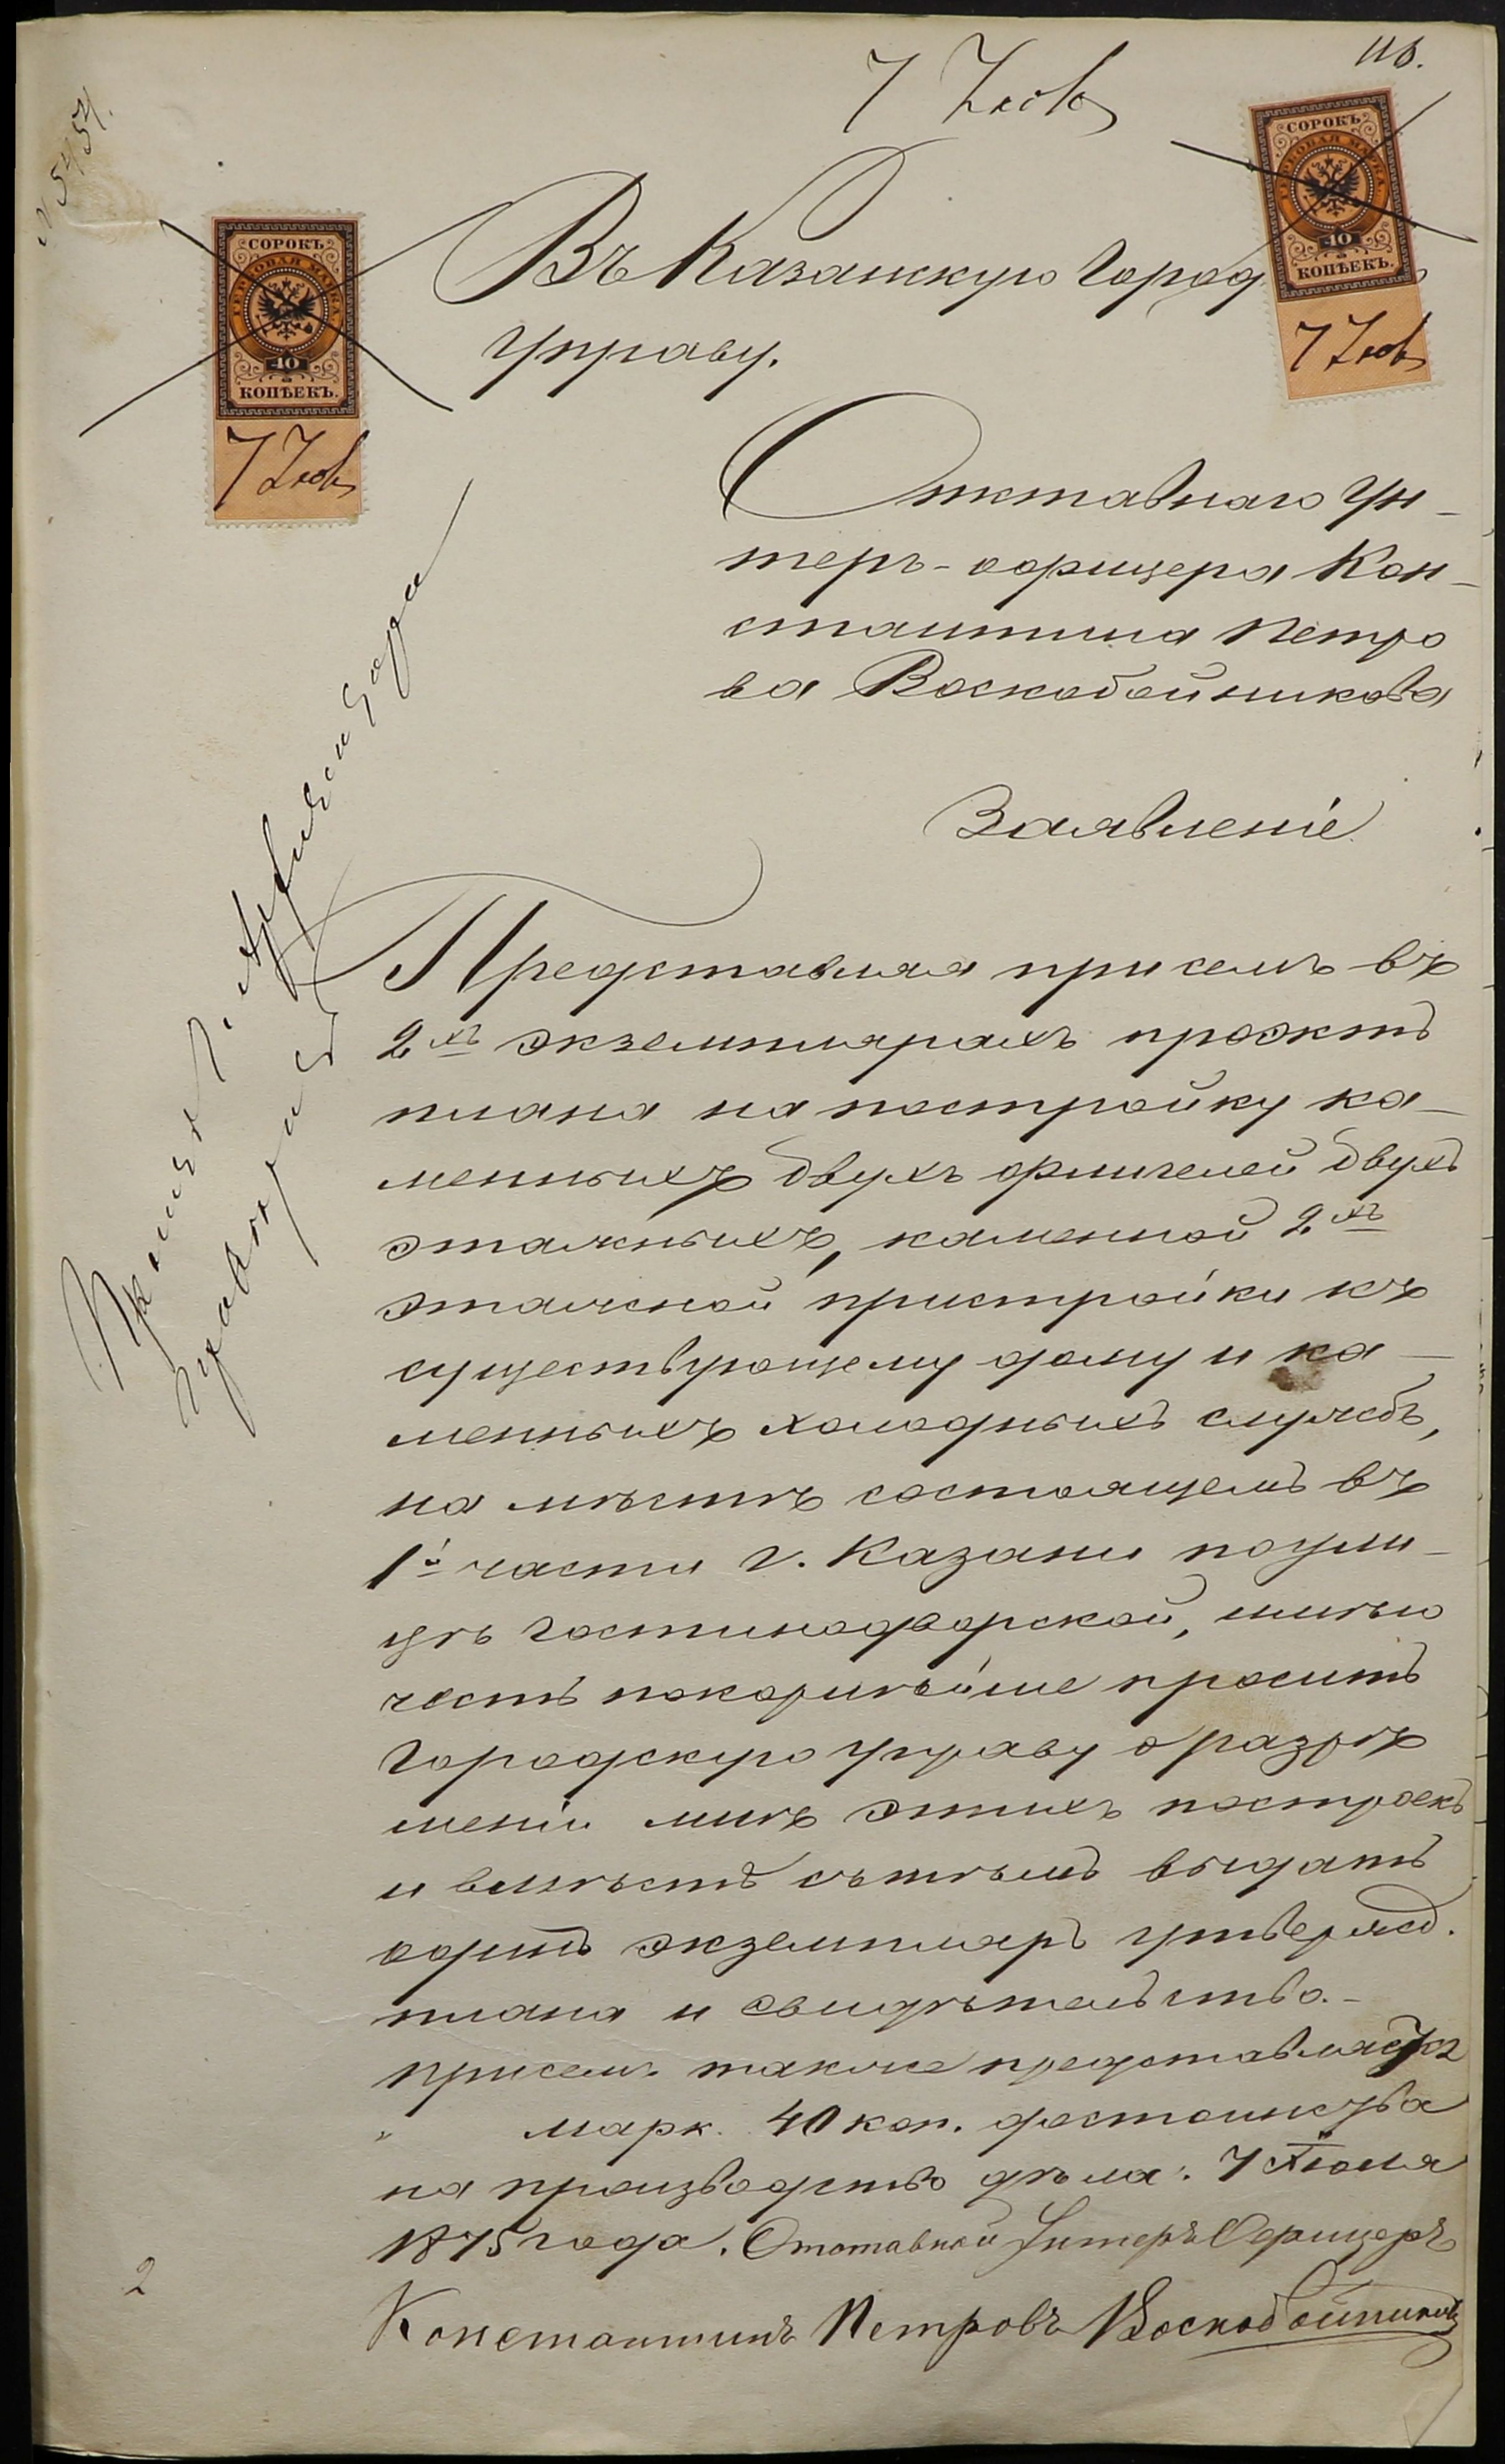 116.
7 Іюля
№ 5454.
СОРОКЪ
ГЕРБОВАЯ МАРКА
40
КОПѢЕКЪ.
7 Іюля
СОРОКЪ
ГЕРБОВАЯ МАРКА
40
КОПѢЕКЪ.
7 Іюля
Въ Казанскую Город
Управу.
Отставнаго Ун-
теръ-офицера Кон-
стантина Петро
ва Воскобойникова
Заявленіе
Представляя при семъ въ
2хъ экземплярахъ проэктъ
плана на постройку ка-
менныхъ двухъ флигелей двухъ
этажныхъ, каменной 2хъ
этажной пристройки къ
существующему дому и ка-
менныхъ холодныхъ службъ,
на мѣстѣ состоящемъ въ
1й части г. Казани по ули-
цѣ Гостинодворской, имѣю
честь покорнѣйше просить
Городскую Управу о разрѣ
шеніи мнѣ этихъ построекъ
и вмѣстѣ съ тѣмъ выдать
одинъ экземпляръ утвержд.
плана и свидѣтельство.-
При семъ также представляются
марк. 40 коп. достоинства
на производство дѣла. 7 Іюля
1875 года. Отставной Унтеръ Офицеръ
Константинъ Петровъ Воскобойниковъ
2